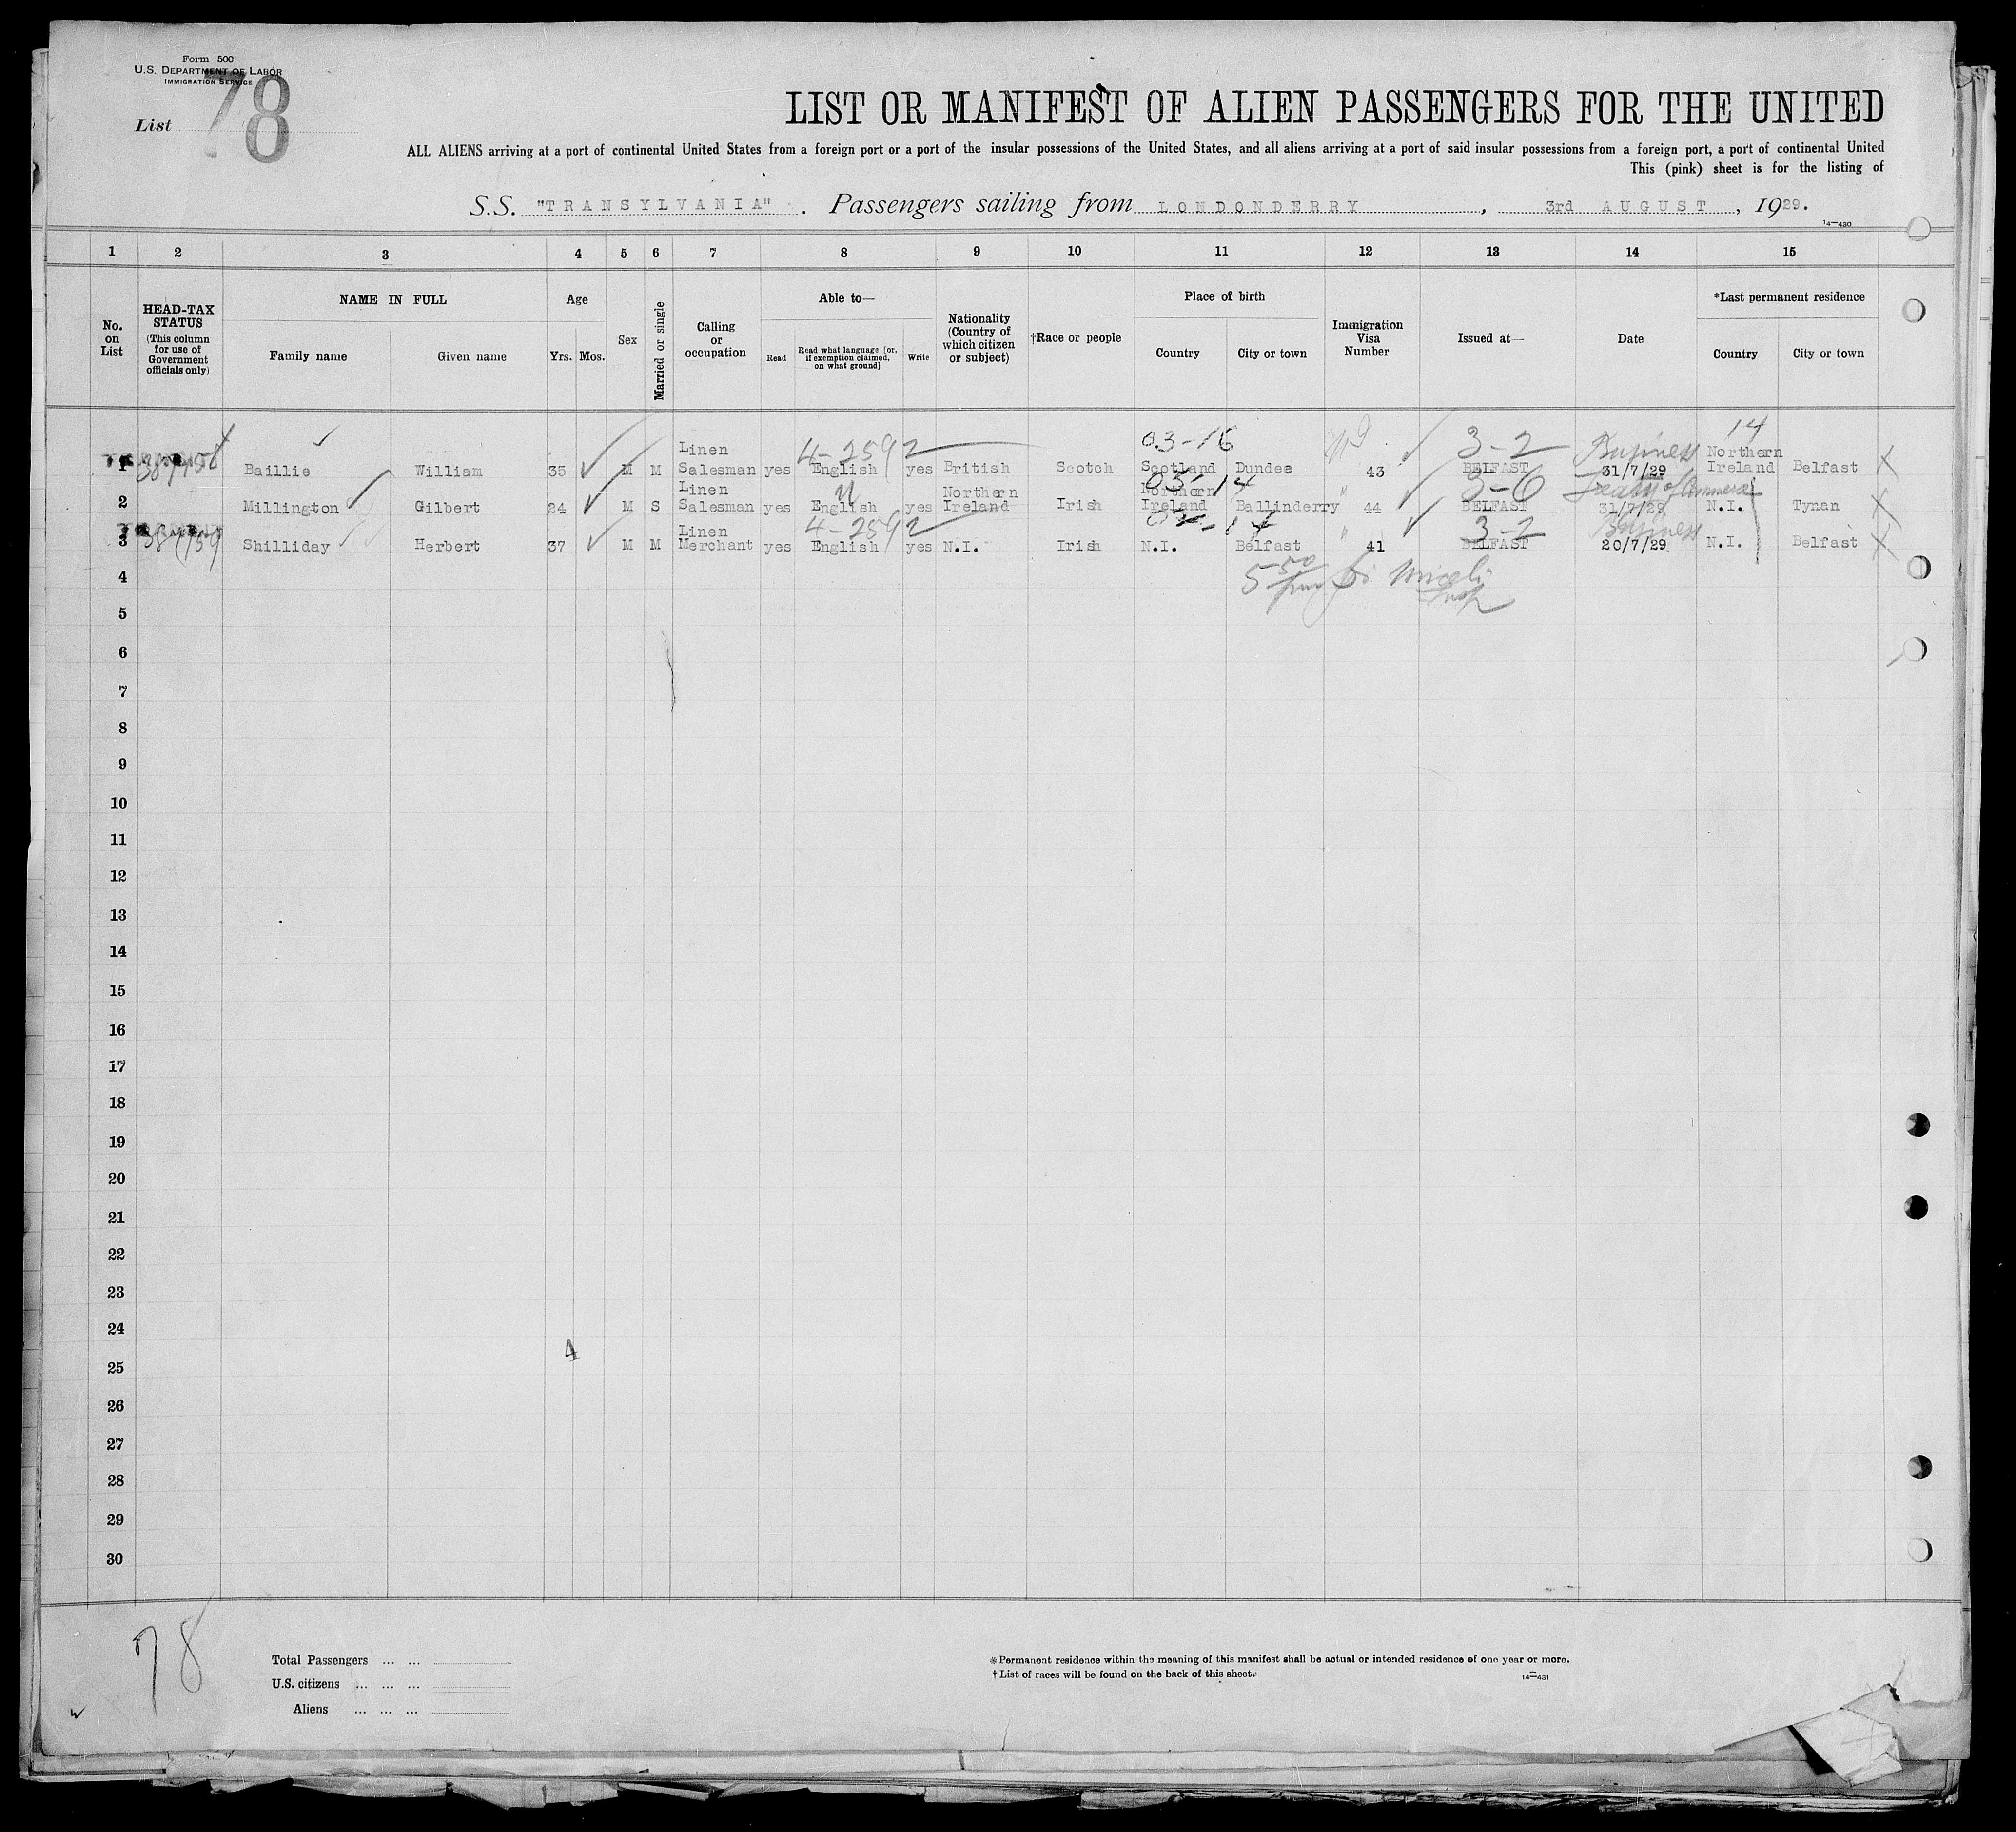 Form 500
U.S. DEPARTMENT OF LABOR
IMMIGRATION SERVICE
List 78
LIST OR MANIFEST OF ALIEN PASSENGERS FOR THE UNITED
ALL ALIENS arriving at a port of continental United States from a foreign port or a port of the insular possessions of the United States, and all aliens arriving at a port of said insular possessions from a foreign port, a port of continental United
This (pink) sheet is for the listing of
S.S. "TRANSYLVANIA". Passengers sailing from LONDONDERRY, 3rd AUGUST, 1929.
14—430
1 2 3 4 5 6 7 8 9 10 11 12 13 14 15
No. on List
HEAD-TAX STATUS (This column for use of Government officials only)
NAME IN FULL
Family name Given name
Age
Yrs. Mos.
Sex
Married or single
Calling or occupation
Able to—
Read
Read what language [or, if exemption claimed, on what ground]
Write
Nationality (Country of which citizen or subject)
†Race or people
Place of birth
Country City or town
Immigration Visa Number
Issued at—
Date
*Last permanent residence
Country City or town
4-2592 03-16 3-2 Business 14
1 Baillie William 35 M M Linen Salesman yes English yes British Scotch Scotland Dundee 43 BELFAST 31/7/29 Northern Ireland Belfast X
03-14 3-6 Treaty of Commerce
2 Millington Gilbert 24 M S Linen Salesman yes English yes Northern Ireland Irish Northern Ireland Ballinderry " 44 BELFAST 31/7/29 N.I. Tynan X
4-2592 3-2 Business
3 Shilliday Herbert 37 M M Linen Merchant yes English yes N.I. Irish N.I. Belfast " 41 BELFAST 20/7/29 N.I. Belfast X
4
5
6
7
8
9
10
11
12
13
14
15
16
17
18
19
20
21
22
23
24
4
25
26
27
28
29
30
78
Total Passengers ... ...
U.S. citizens ... ... ...
Aliens ... ... ...
*Permanent residence within the meaning of this manifest shall be actual or intended residence of one year or more.
†List of races will be found on the back of this sheet.
14—431